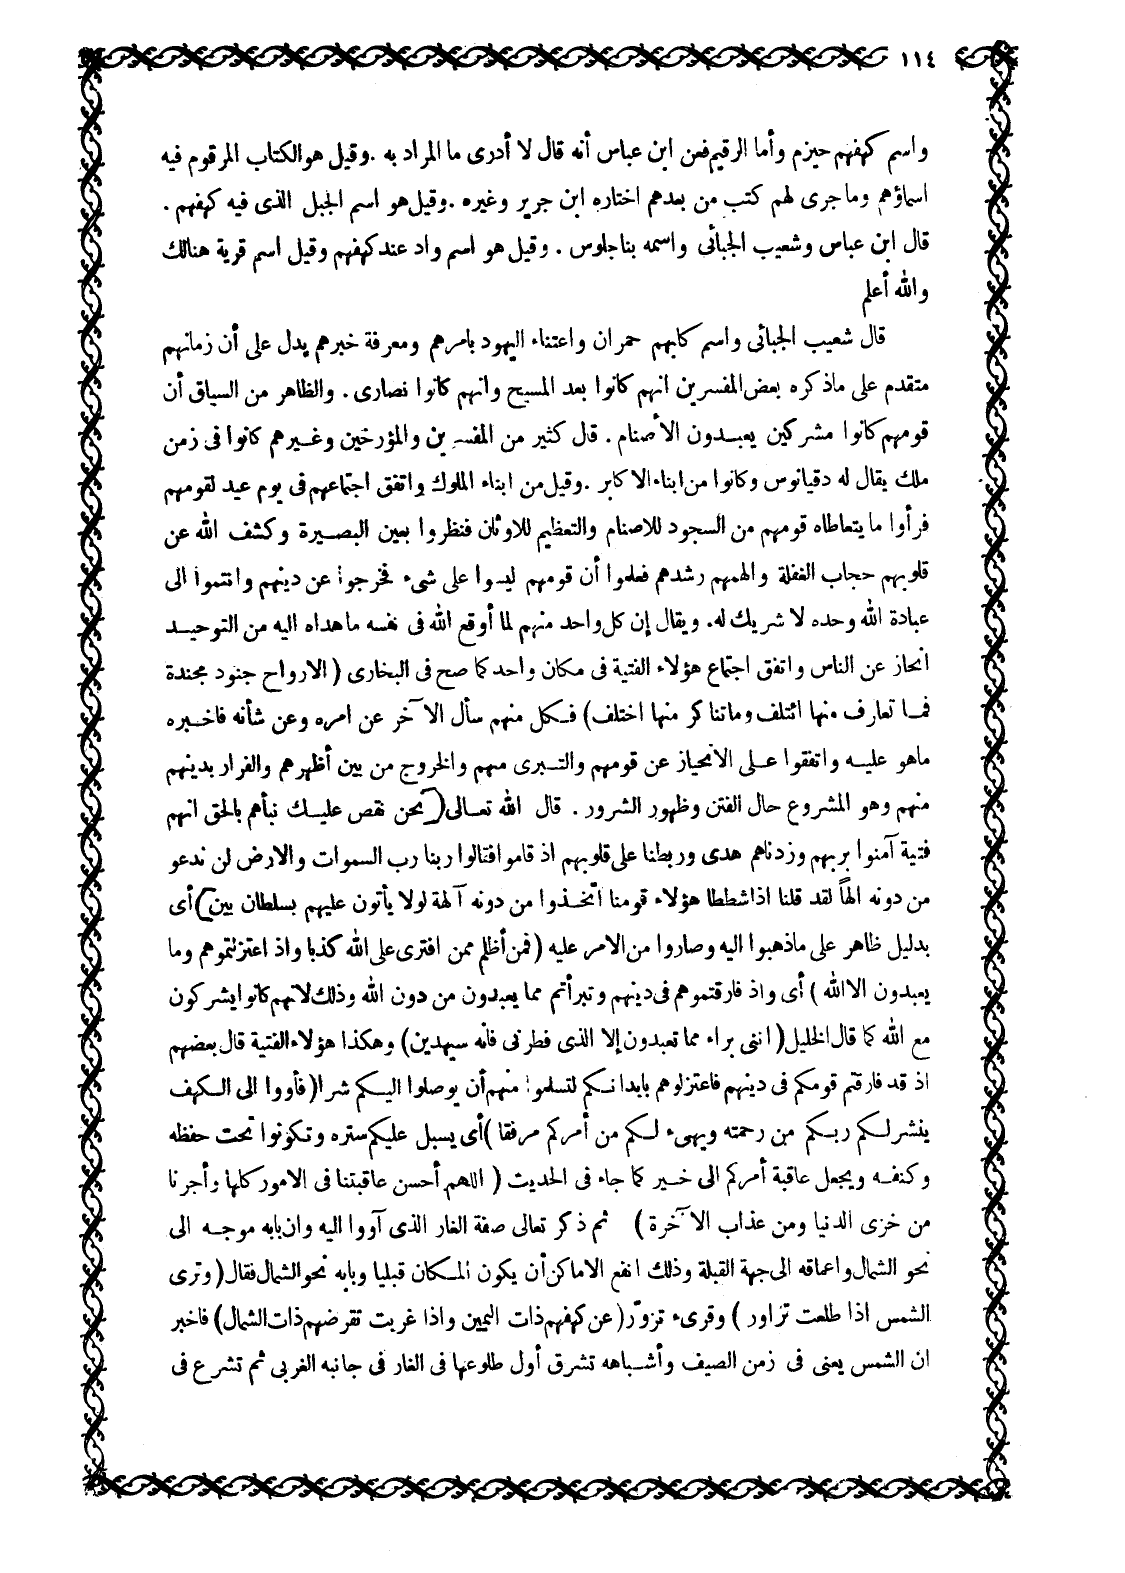 ١١٤
واسم كهفهم حيزم وأما الرقيم فعن ابن عباس أنه قال لا أدرى ما المراد به . وقيل هو الكتاب المرقوم فيه
اسماؤهم وما جرى لهم كتب من بعدهم اختاره ابن جرير وغيره . وقيل هو اسم الجبل الذى فيه كهفهم .
قال ابن عباس وشعيب الجبائى واسمه بناجلوس . وقيل هو اسم واد عند كهفهم وقيل اسم قرية هنالك
والله أعلم
قال شعيب الجبائى واسم كلبهم حمران واعتناء اليهود بامرهم ومعرفة خبرهم يدل على أن زمانهم
متقدم على ماذكره بعض المفسرين انهم كانوا بعد المسيح وانهم كانوا نصارى . والظاهر من السياق أن
قومهم كانوا مشركين يعبدون الأصنام . قال كثير من المفسرين والمؤرخين وغيرهم كانوا فى زمن
ملك يقال له دقيانوس وكانوا من ابناء الاكابر . وقيل من ابناء الملوك واتفق اجتماعهم فى يوم عيد لقومهم
فرأوا ما يتعاطاه قومهم من السجود للاصنام والتعظيم للاوثان فنظروا بعين البصيرة وكشف الله عن
قلوبهم حجاب الغفلة والهمهم رشدهم فعلموا أن قومهم ليسوا على شىء فخرجوا عن دينهم وانتموا الى
عبادة الله وحده لا شريك له. ويقال إن كل واحد منهم لما أوقع الله فى نفسه ما هداه اليه من التوحيد
انحاز عن الناس واتفق اجتماع هؤلاء الفتية فى مكان واحد كما صح فى البخارى ( الارواح جنود مجندة
فما تعارف منها ائتلف وما تناكر منها اختلف) فكل منهم سأل الآخر عن امره وعن شأنه فاخبره
ماهو عليه واتفقوا على الانحياز عن قومهم والتبرى منهم والخروج من بين أظهرهم والفرار بدينهم
منهم وهو المشروع حال الفتن وظهور الشرور . قال الله تعالى (نحن نقص عليك نبأهم بالحق انهم
فتية آمنوا بربهم وزدناهم هدى وربطنا على قلوبهم اذ قاموا فقالوا ربنا رب السموات والارض لن ندعو
من دونه الهاً لقد قلنا اذا شططا هؤلاء قومنا اتخذوا من دونه آلهة لولا يأتون عليهم بسلطان بين) أى
بدليل ظاهر على ماذهبوا اليه وصاروا من الامر عليه (فمن أظلم ممن افترى على الله كذبا واذ اعتزلتموهم وما
يعبدون الا الله ) أى واذ فارقتموهم فى دينهم وتبرأتم مما يعبدون من دون الله وذلك لانهم كانوا يشركون
مع الله كما قال الخليل ( اننى براء مما تعبدون إلا الذى فطرنى فانه سيهدين) وهكذا هؤلاء الفتية قال بعضهم
اذ قد فارقتم قومكم فى دينهم فاعتزلوهم بابدانكم لتسلموا منهم أن يوصلوا اليكم شرا (فأووا الى الكهف
ينشر لكم ربكم من رحمته ويهىء لكم من أمركم مرفقا ) أى يسبل عليكم ستره وتكونوا تحت حفظه
وكنفه ويجعل عاقبة أمركم الى خير كما جاء فى الحديث ( اللهم أحسن عاقبتنا فى الامور كلها وأجرنا
من خزى الدنيا ومن عذاب الآخرة ) ثم ذكر تعالى صفة الغار الذى آووا اليه وان بابه موجه الى
نحو الشمال واعماقه الى جهة القبلة وذلك انفع الاماكن أن يكون المكان قبليا وبابه نحو الشمال فقال ( وترى
الشمس اذا طلعت تزاور ) وقرىء تزورّ ( عن كهفهم ذات اليمين واذا غربت تقرضهم ذات الشمال) فاخبر
ان الشمس يعنى فى زمن الصيف وأشباهه تشرق أول طلوعها فى الغار فى جانبه الغربى ثم تشرع فى